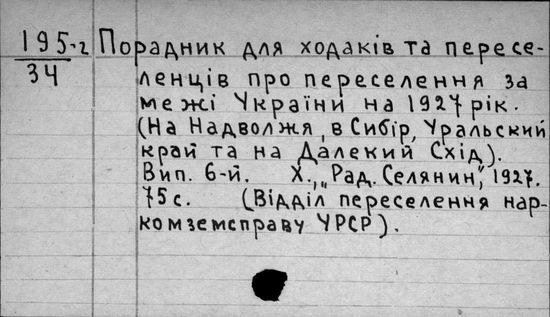 195-г Порадник для ходаків та пересе-
34 ленців про переселення за
межі України на 1927 рік.
(На Надволжя, в Сибір, Уральский
край та на Далекий Схід).
Вип. 6-й. Х., „Рад. Селянин", 1927.
75 с. (Відділ переселення нар-
комземсправу УРСР).